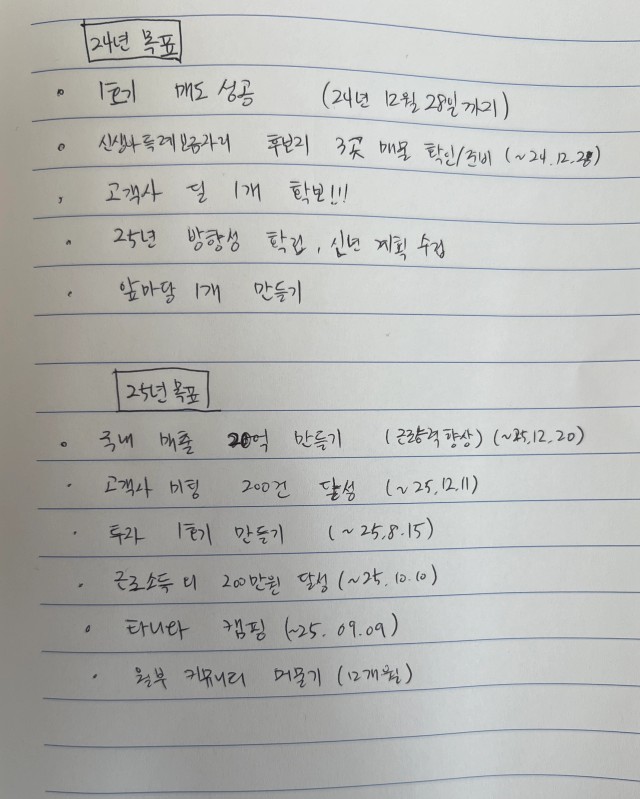 24년 목표
• 1호기 매도 성공 (24년 12월 28일까지)
• 신생아특례보금자리 후보리 3곳 매물 확인/준비 (~24.12.28)
• 고객사 딜 1개 확보!!!
• 25년 방향성 확립, 신년 계획 수립
• 앞마당 1개 만들기
25년 목표
• 국내 매출 20억 만들기 (근량력 향상) (~25.12.20)
• 고객사 미팅 200건 달성 (~25.12.11)
• 투자 1호기 만들기 (~25.8.15)
• 근로소득 더 200만원 달성 (~25.10.10)
• 타니와 캠핑 (~25.09.09)
• 월부 커뮤니티 머물기 (12개월)